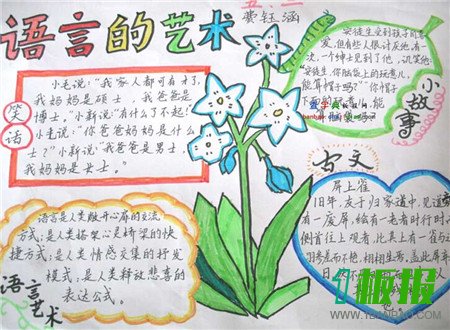 语言的艺术
五、二
黄钰涵
笑话
小毛说:“我家人都可有才了,
我妈妈是硕士,我爸爸是
博士。”小新说:“有什么了不起!”
小毛说:“你爸爸妈妈是什么
士?”小新说:“我爸爸是男士,
我妈妈是女士。”
语言是人类敞开心扉的交流
方式;是人类搭架心灵桥梁的快
捷方式;是人类情感交集的抒发
模式;是人类释放悲喜的
表达公式。
语言艺术
小故事
安徒生受到孩子们喜
爱,但有些人很讨厌他,有一
次,一个绅士见到了他,讥笑他:
“安徒生,你脑袋上的玩意儿,
能算帽子吗?”“你帽子
下
古文
屏上雀
旧年,友于归家道中,见道旁
有一废屏,绘有一老者时行时
侧首往上观看,比其上有一雀与之
相生相
也
1板报
WWW.1BANBAO.COM